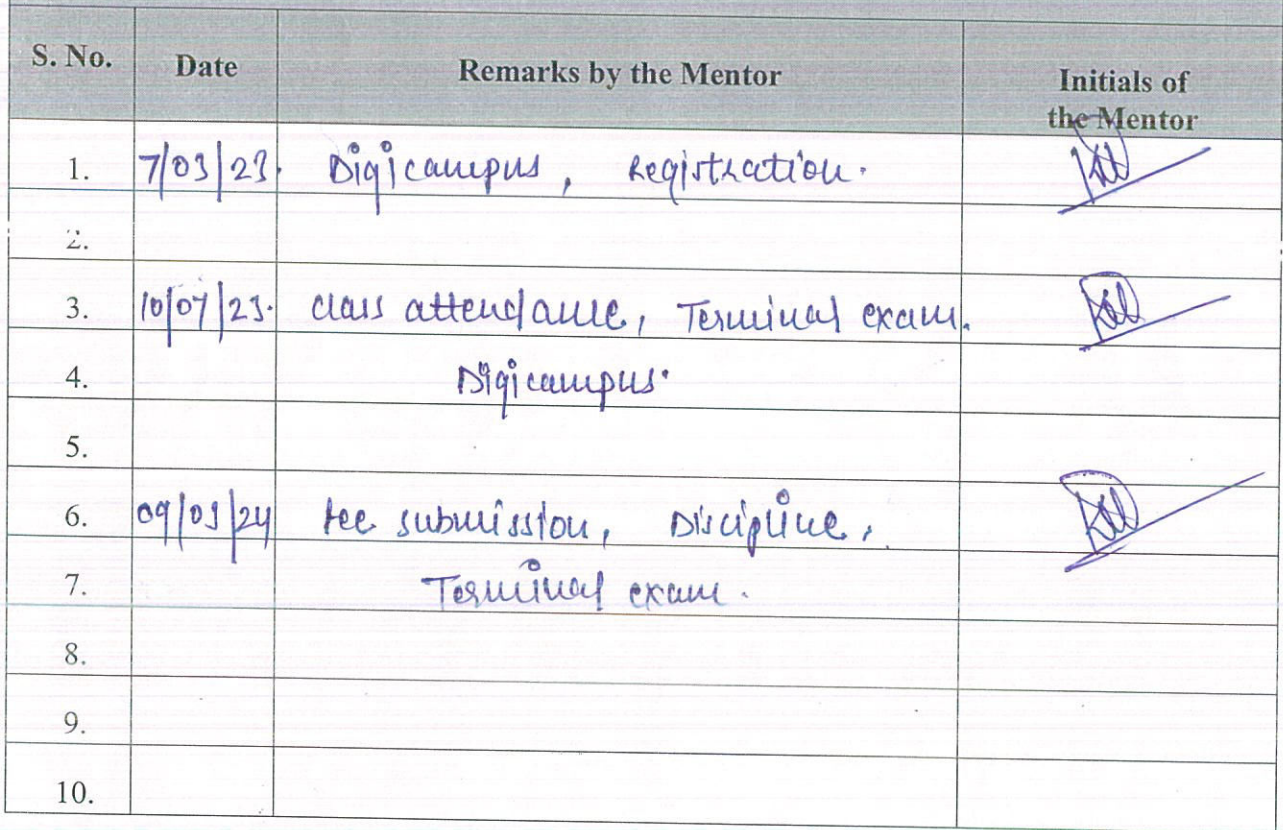 S. No. Date Remarks by the Mentor Initials of the Mentor
1. 7/03/23. Digicampus, Registration.
2.
3. 10/07/23. class attendance, Terminal exam.
4. Digicampus.
5.
6. 09/03/24 fee submission, Discipline,
7. Terminal exam.
8.
9.
10.